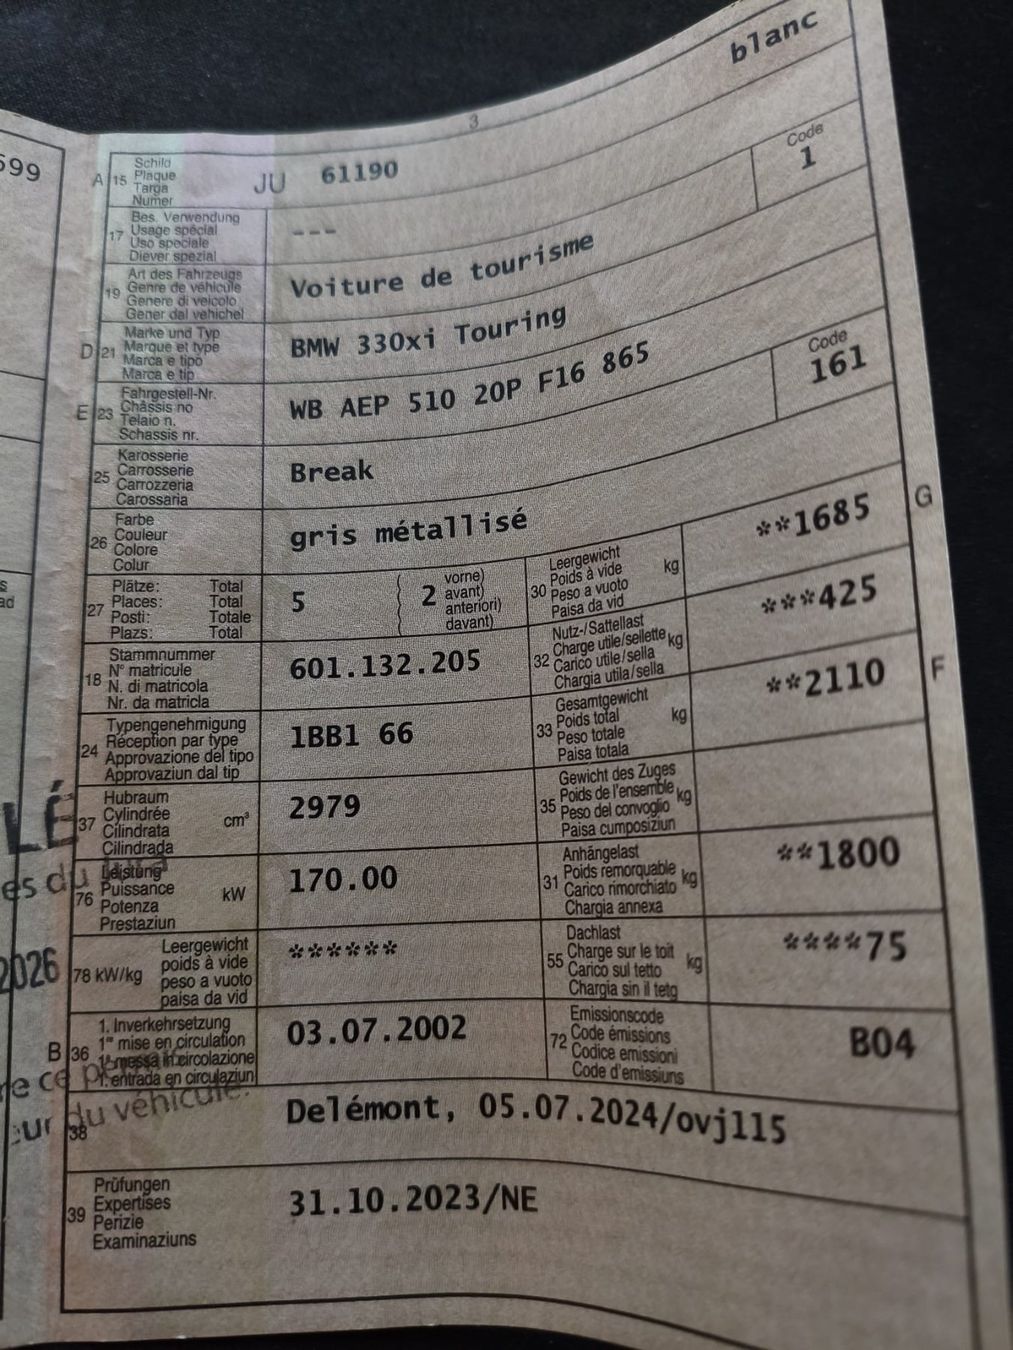 599
blanc
3
A 15 Schild
Plaque
Targa
Numer
JU 61190
Code
1
17 Bes. Verwendung
Usage spécial
Uso speciale
Diever spezial
---
19 Art des Fahrzeugs
Genre de véhicule
Genere di veicolo
Gener dal vehichel
Voiture de tourisme
D 21 Marke und Typ
Marque et type
Marca e tipo
Marca e tip
BMW 330xi Touring
E 23 Fahrgestell-Nr.
Châssis no
Telaio n.
Schassis nr.
WB AEP 510 20P F16 865
Code
161
25 Karosserie
Carrosserie
Carrozzeria
Carossaria
Break
26 Farbe
Couleur
Colore
Colur
gris métallisé
27 Plätze: Total
Places: Total
Posti: Totale
Plazs: Total
5
( 2 vorne)
avant)
anteriori)
( davant)
30 Leergewicht
Poids à vide kg
Peso a vuoto
Paisa da vid
**1685
G
18 Stammnummer
N° matricule
N. di matricola
Nr. da matricla
601.132.205
32 Nutz-/Sattellast
Charge utile/sellette kg
Carico utile/sella
Chargia utila/sella
***425
24 Typengenehmigung
Réception par type
Approvazione del tipo
Approvaziun dal tip
1BB1 66
33 Gesamtgewicht
Poids total kg
Peso totale
Paisa totala
**2110
F
37 Hubraum
Cylindrée cm³
Cilindrata
Cilindrada
2979
35 Gewicht des Zuges
Poids de l'ensemble kg
Peso del convoglio
Paisa cumposiziun
76 Leistung
Puissance kW
Potenza
Prestaziun
170.00
31 Anhängelast
Poids remorquable kg
Carico rimorchiato
Chargia annexa
**1800
78 kW/kg Leergewicht
poids à vide
peso a vuoto
paisa da vid
******
55 Dachlast
Charge sur le toit kg
Carico sul tetto
Chargia sin il tetg
****75
B 36 1. Inverkehrsetzung
1re mise en circulation
1a messa in circolazione
1. entrada en circulaziun
03.07.2002
72 Emissionscode
Code émissions
Codice emissioni
Code d'emissiuns
B04
38
Delémont, 05.07.2024/ovj115
39 Prüfungen
Expertises
Perizie
Examinaziuns
31.10.2023/NE
LÉ
es du Jura
2026
re ce permis
eur du véhicule.